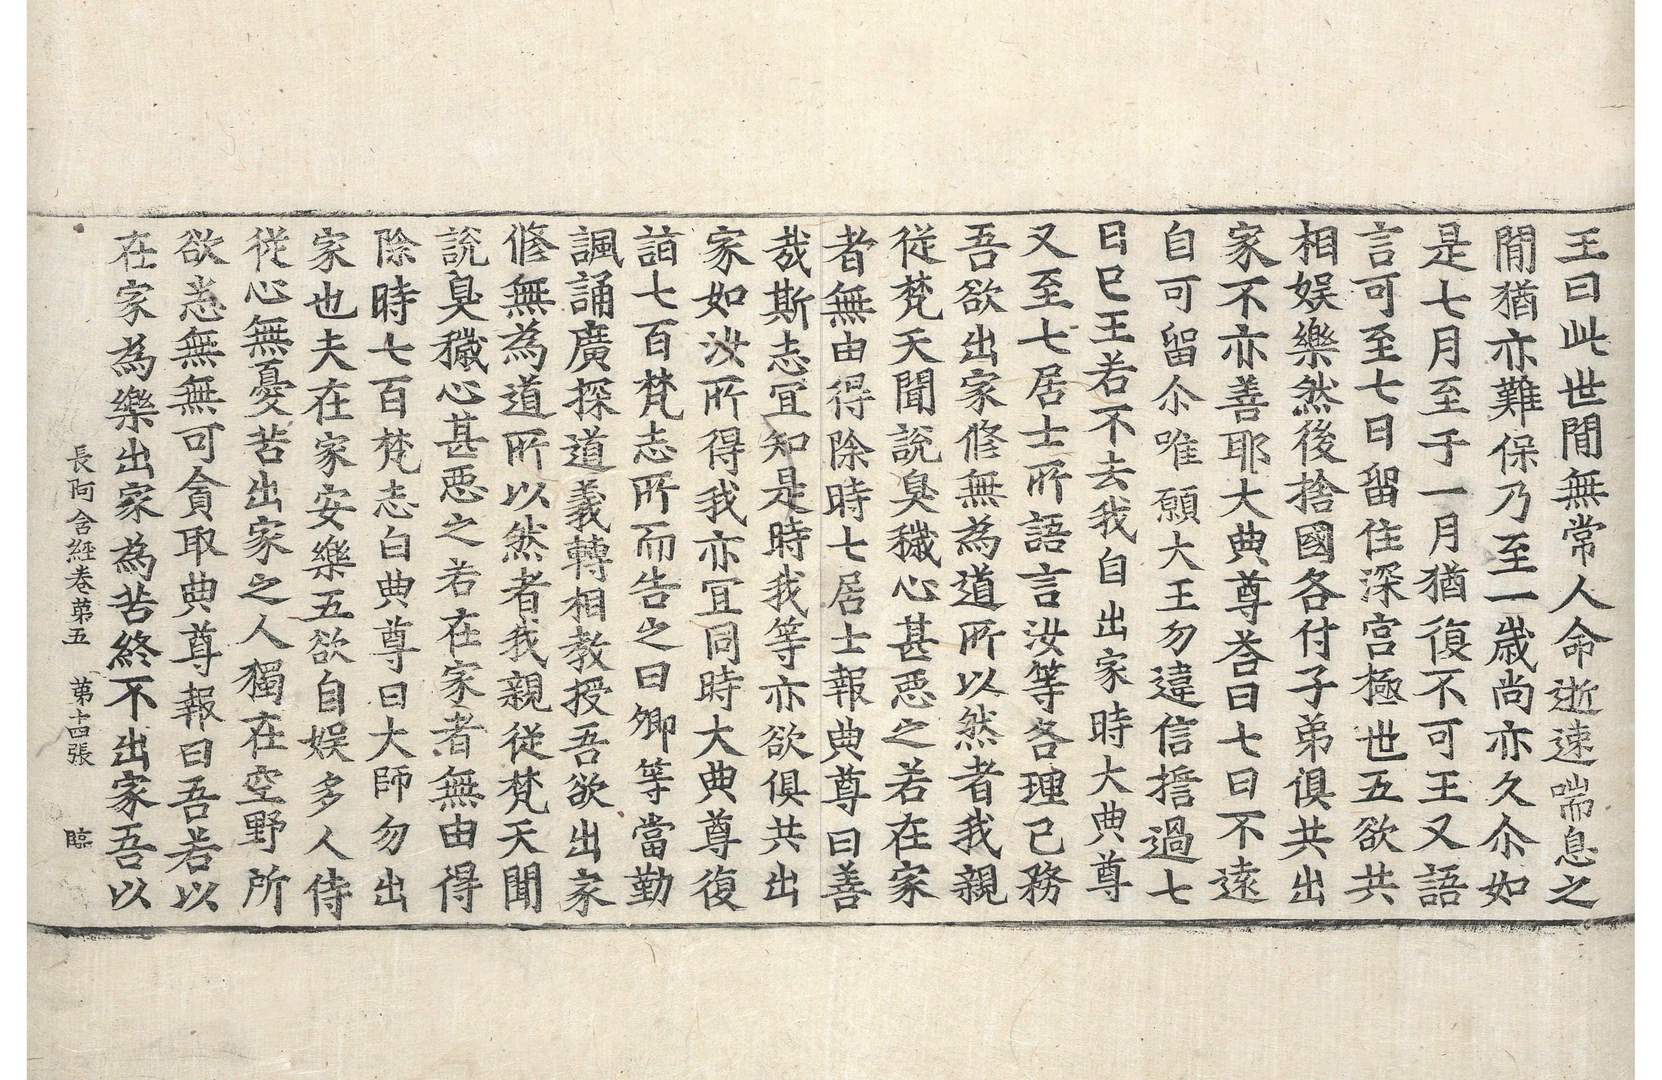 王曰此世閒無常人命逝速喘息之
閒猶亦難保乃至一歲尚亦久尒如
是七月至于一月猶復不可王又語
言可至七日留住深宮極世五欲共
相娛樂然後捨國各付子弟俱共出
家不亦善耶大典尊荅曰七日不遠
自可留尒唯願大王勿違信擔過七
日已王若不去我自出家時大典尊
又至七居士所語言汝等各理已務
吾欲出家修無為道所以然者我親
從梵天聞說臭穢心甚惡之若在家
者無由得除時七居士報典尊曰善
哉斯志冝知是時我等亦欲俱共出
家如汝所得我亦冝同時大典尊復
詣七百梵志所而告之曰卿等當勤
諷誦廣探道義轉相教授吾欲出家
修無為道所以然者我親從梵天聞
說臭穢心甚惡之若在家者無由得
除時七百梵志白典尊曰大師勿出
家也夫在家安樂五欲自娛多人侍
從心無憂苦出家之人獨在空野所
欲悉無無可貪取典尊報曰吾若以
在家為樂出家為苦終不出家吾以
長阿含経卷第五 第十四張 臨